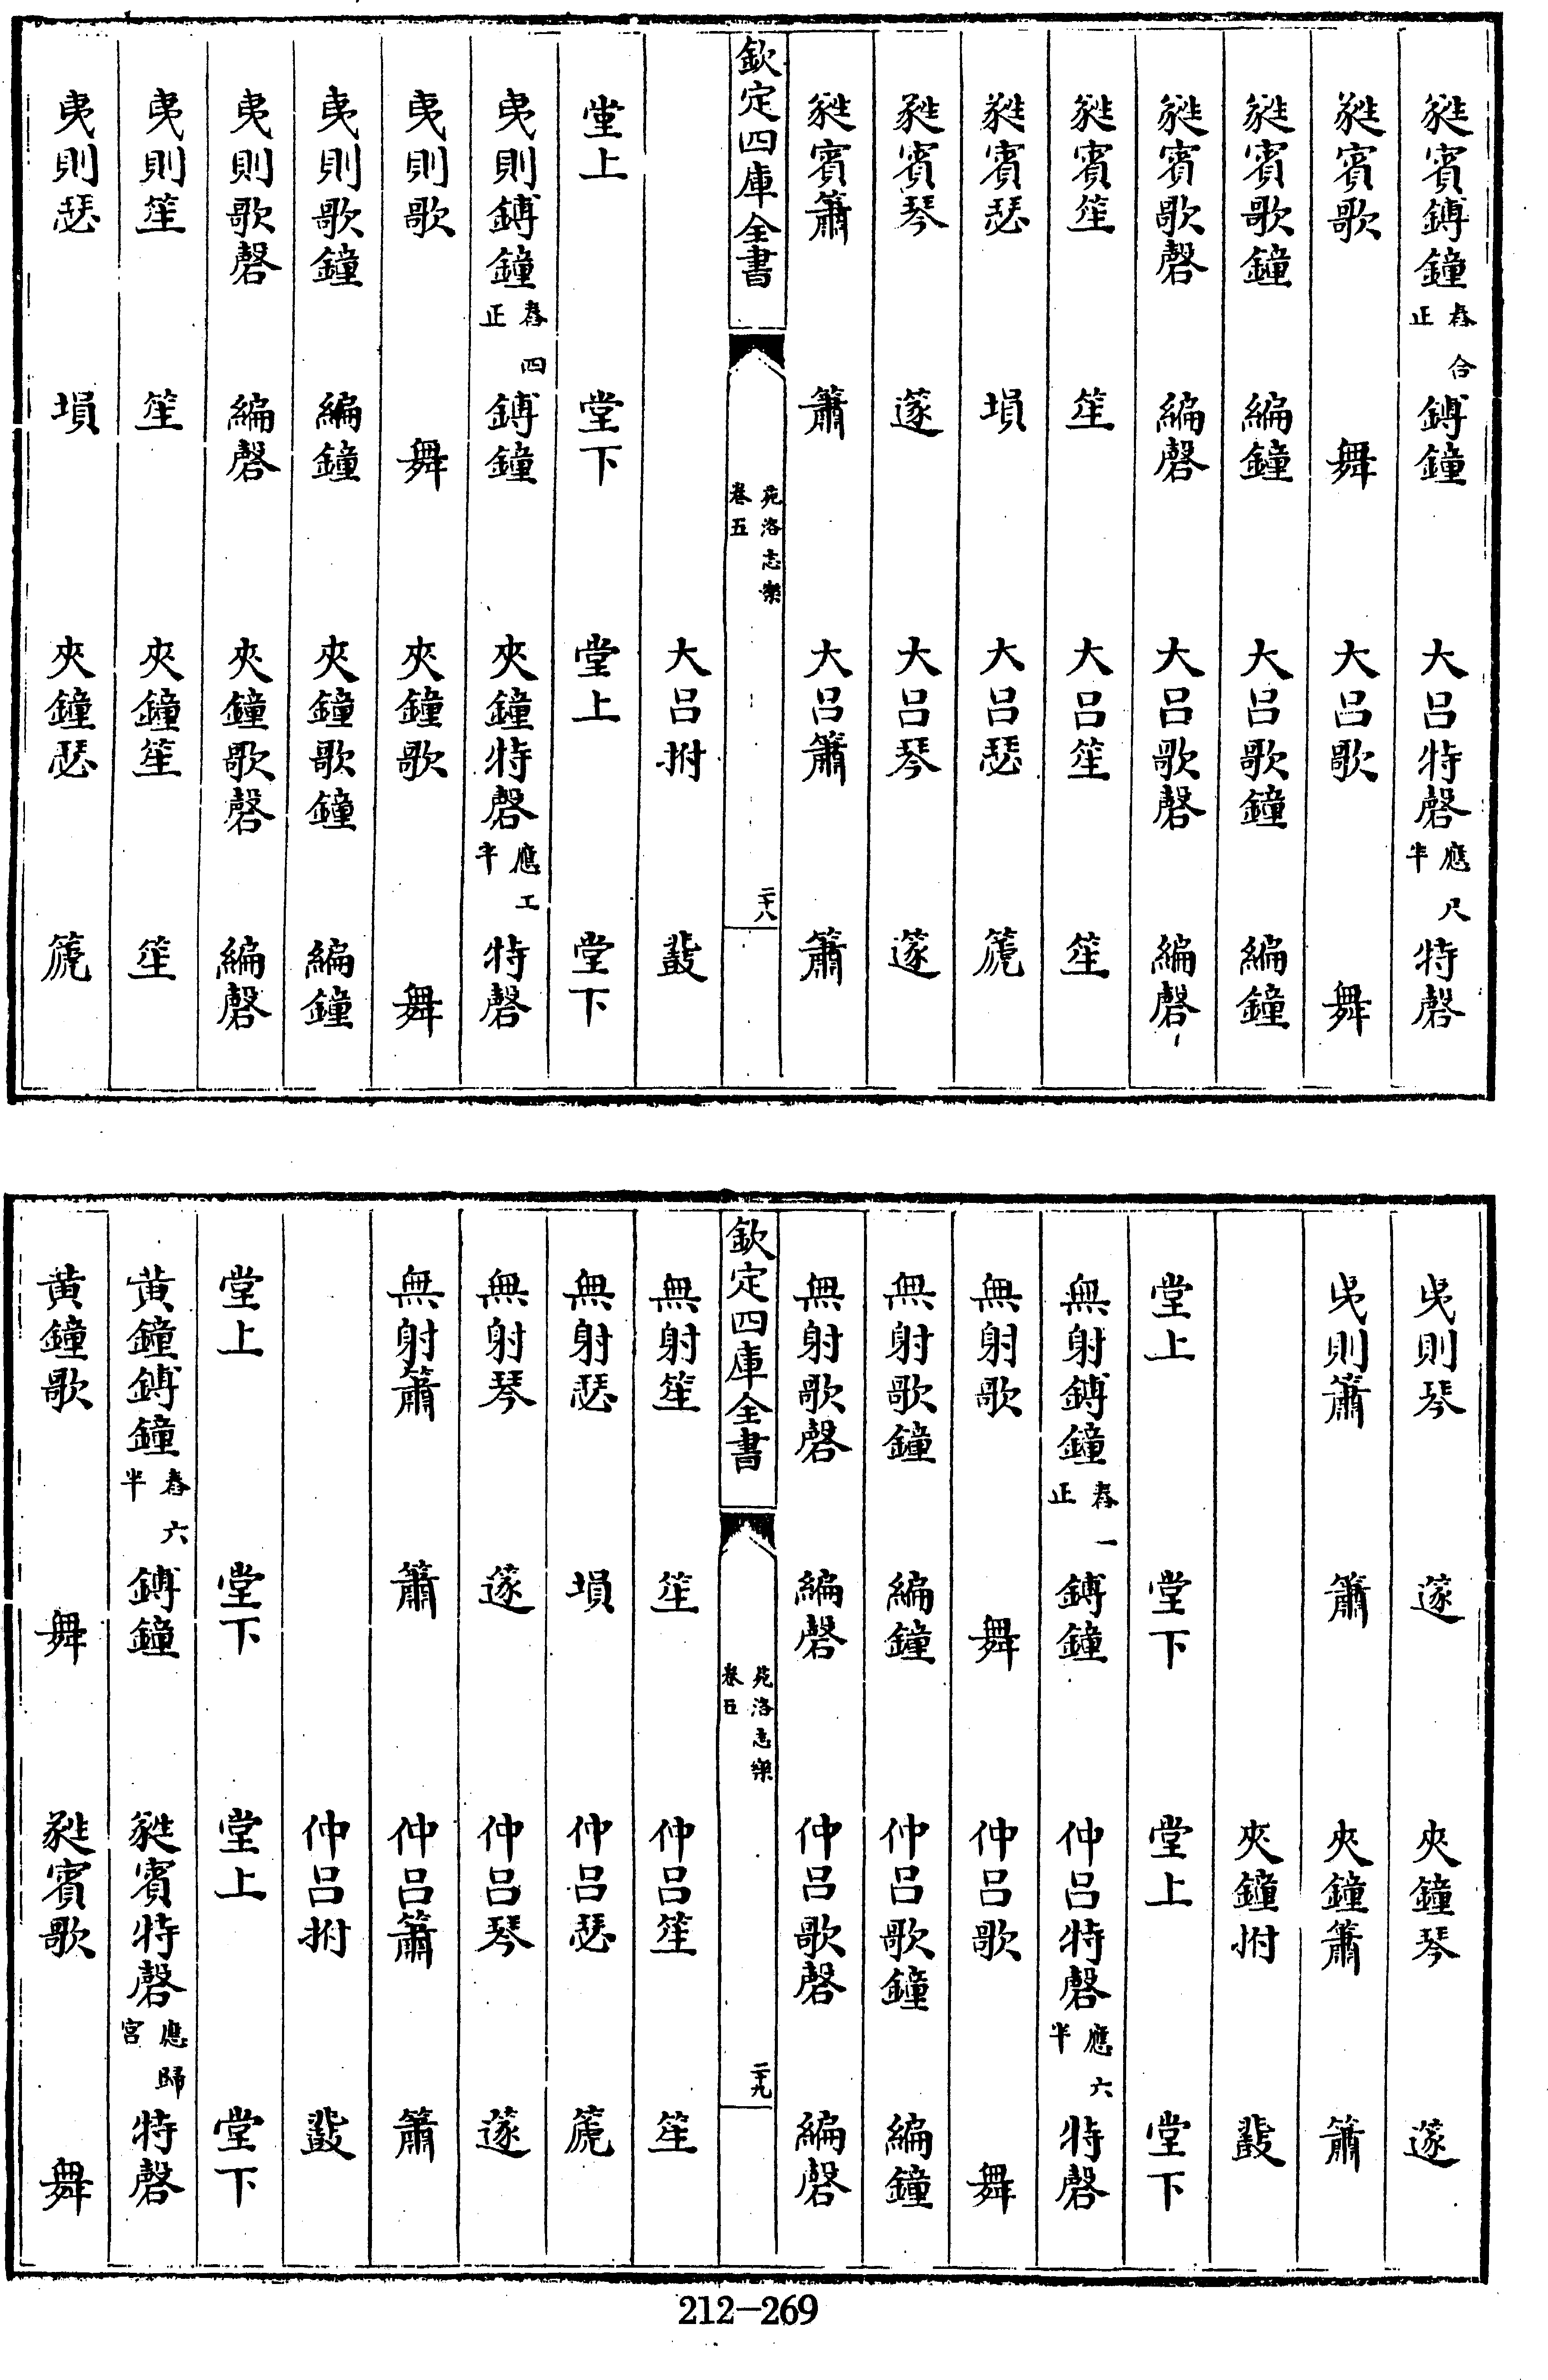 蕤賓鎛鐘舂合正 鎛鐘 大呂特磬應尺半 特磬
蕤賓歌 舞 大呂歌 舞
蕤賓歌鐘 編鐘 大呂歌鐘 編鐘
蕤賓歌磬 編磬 大呂歌磬 編磬
蕤賓笙 笙 大呂笙 笙
蕤賓瑟 塤 大呂瑟 篪
蕤賓琴 篴 大呂琴 篴
蕤賓簫 簫 大呂簫 簫
欽定四庫全書 苑洛志樂 卷五 二十八
大呂拊 鼗
堂上 堂下 堂上 堂下
夷則鎛鐘舂四正 鎛鐘 夾鐘特磬應工半 特磬
夷則歌 舞 夾鐘歌 舞
夷則歌鐘 編鐘 夾鐘歌鐘 編鐘
夷則歌磬 編磬 夾鐘歌磬 編磬
夷則笙 笙 夾鐘笙 笙
夷則瑟 塤 夾鐘瑟 篪
夷則琴 篴 夾鐘琴 篴
夷則簫 簫 夾鐘簫 簫
夾鐘拊 鼗
堂上 堂下 堂上 堂下
無射鎛鐘舂一正 鎛鐘 仲呂特磬應六半 特磬
無射歌 舞 仲呂歌 舞
無射歌鐘 編鐘 仲呂歌鐘 編鐘
無射歌磬 編磬 仲呂歌磬 編磬
欽定四庫全書 苑洛志樂 卷五 二十九
無射笙 笙 仲呂笙 笙
無射瑟 塤 仲呂瑟 篪
無射琴 篴 仲呂琴 篴
無射簫 簫 仲呂簫 簫
仲呂拊 鼗
堂上 堂下 堂上 堂下
黃鐘鎛鐘舂六半 鎛鐘 蕤賓特磬應歸宮 特磬
黃鐘歌 舞 蕤賓歌 舞
212-269